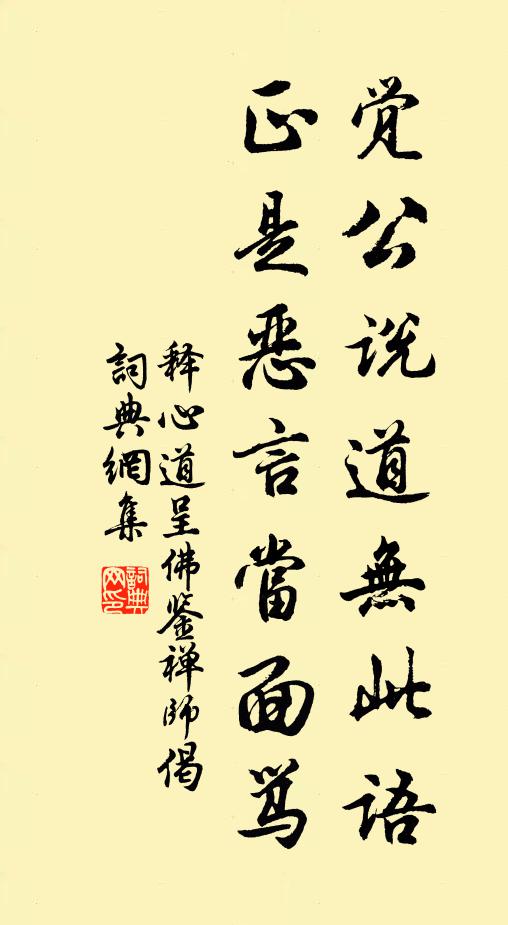 觉公说道無此语
正是恶言當面骂
释心道呈佛鉴禅师偈
詞典網集
詞典
网印